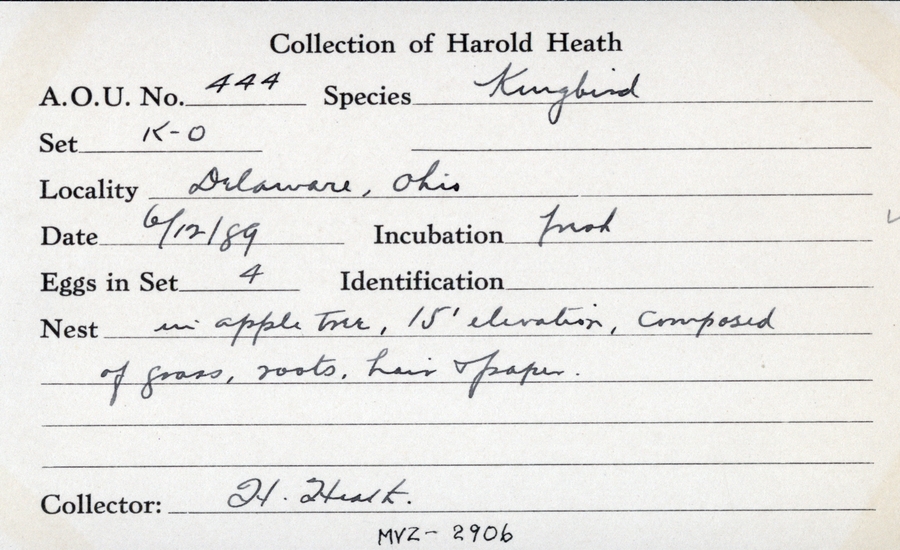 Collection of Harold Heath
A.O.U. No. 444 Species Kingbird
Set K-0
Locality Delaware, Ohio
Date 6/12/89 Incubation fresh
Eggs in Set 4 Identification
Nest in apple tree, 15' elevation, composed
of grass, roots, hair & paper.
Collector: H. Heath.
MVZ- 2906